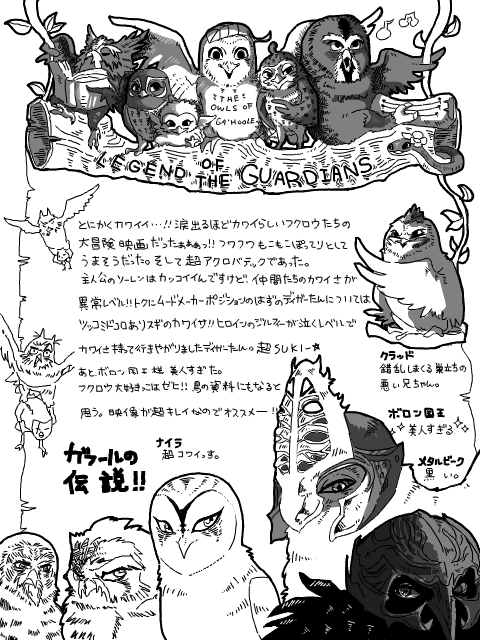 THE
OWLS OF
GA'HOOLE
LEGEND OF
THE GUARDIANS
とにかくカワイイ…!! 涙出るほどカワイらしいフクロウたちの
大冒険映画だったぁぁぁっ!! フワフワもこもこぽってりとして
うまそうだった。そして超アクロバテックであった。
主人公のソーレンはカッコイイんですけど、仲間たちのカワイさが
異常レベル!!トクにムードメーカーポジションのはずのディガーたんについては
ツッコミドコロありスギのカワイサ!! ヒロインのジルフィーが泣くレベルで
カワイさ持って行きやがりましたディガーたん。超SUKI-☆
あと、ボロン国王 様 美人すぎた。
フクロウ大好きっこはゼヒ!! 鳥の資料にもなると
思う。映像が超キレイなのでオススメー!!
クラッド
錯乱しまくる巣立ちの
悪い兄ちゃん。
ボロン国王
美人すぎる
メタルビーク
黒い。
ナイラ
超コワイっす。
ガフールの
伝説!!